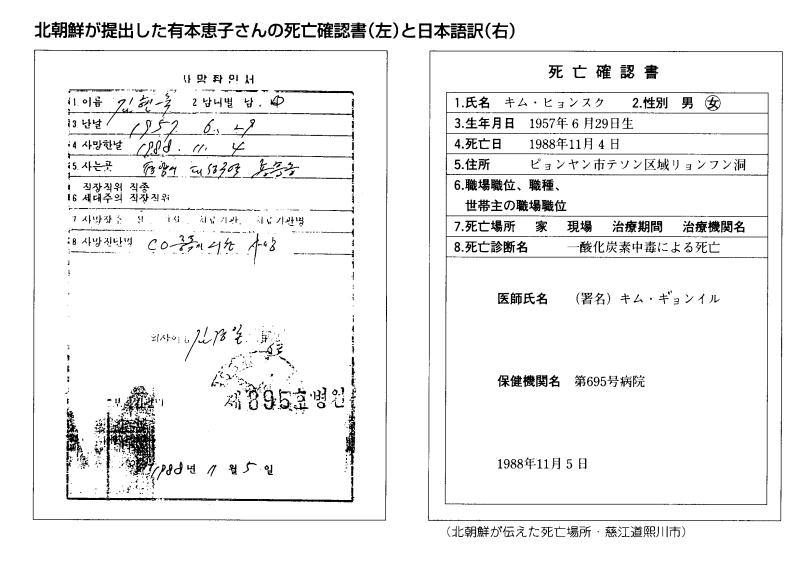 北朝鮮が提出した有本恵子さんの死亡確認書(左)と日本語訳(右)
사망확인서
1 이름 김현숙 2 남녀별 남. 여
3 난날 1957 6. 29
4 사망한날 1988. 11. 4
5 사는곳
직장직위 직종
6 세대주의 직장직위
8 사망진단명 CO-중독에 의한 사망
의사이름 김경일
제695호병원
1988년 11월 5일
死亡確認書
1.氏名 キム・ヒョンスク 2.性別 男 女
3.生年月日 1957年6月29日生
4.死亡日 1988年11月4日
5.住所 ピョンヤン市テソン区域リョンフン洞
6.職場職位、職種、
世帯主の職場職位
7.死亡場所 家 現場 治療期間 治療機関名
8.死亡診断名 一酸化炭素中毒による死亡
医師氏名 (署名)キム・ギョンイル
保健機関名 第695号病院
1988年11月5日
(北朝鮮が伝えた死亡場所・慈江道熙川市)